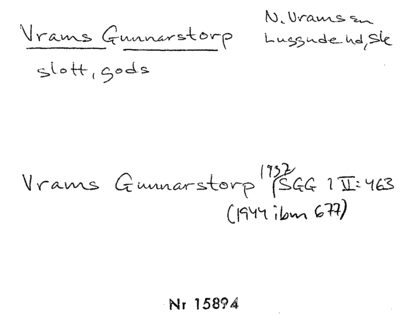 Vrams Gunnarstorp
N. Vrams sn
Luggude hd, Sk
slott, gods
Vrams Gunnarstorp 1932 SGG 1 II: 463
(1944 ibm 677)
Nr 15894